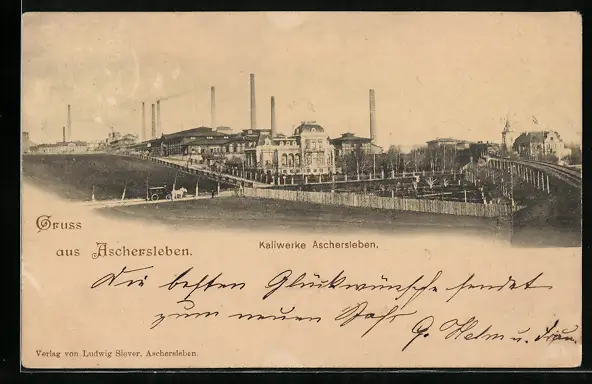 Gruss
aus Aschersleben.
Kaliwerke Aschersleben.
Die besten Glückwünsche sendet
zum neuen Jahr G. Helm u. Frau.
Verlag von Ludwig Siever, Aschersleben.